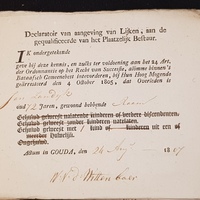 Declaratoir van aangeving van Lijken, aan de
gequalificeerde van het Plaatzelijk Bestuur.
IK ondergetekende
geve bij deze kennis, en zulks ter voldoening aan het 14. Art.
der Ordonnantie op het Recht van Successie, alömme binnen 't
Bataafsch Gemeenebest intevorderen, bij Hun Hoog Mogende
gearresteerd den 4 October 1805, dat Overleden is
oud 72 Jaren, gewoond hebbende
Gehuwd geweest nalatende kinderen of verdere bijzonderen,
Gehuwd geweest zonder kinderen natelaten.
Gehuwd geweest met / kind of kinderen uit een of
meerder Huwelijk.
Ongehuwd.
Actum in GOUDA, den 24 Aug 1807